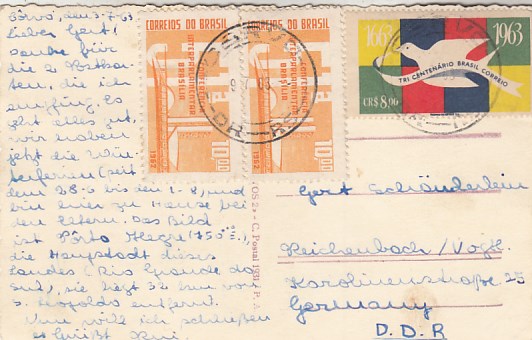 lieber Gert!
Danke für
die 2 Postkar-
ten, die ich
empfing. Es
geht alles gut,
wir haben
jetzt die Win-
terferien (seit
dem 28.6 bis den 1-8) und
bin hier zu Hause bei
den Eltern. Das Bild
ist Pôrto Alegre
die Hauptstadt dieses
Landes (Rio Grande do
Sul), sie liegt 32 km von
S. Leopoldo entfernt.
Nun will ich schließen
es Grüßt
CORREIOS DO BRASIL
CONFERENCIA
INTERPARLAMENTAR
BRASILIA
10,00
1962
CORREIOS DO BRASIL
CONFERENCIA
INTERPARLAMENTAR
BRASILIA
10,00
1962
1663 1963
TRI CENTENÁRIO BRASIL CORREIO
CR$ 8,00
C. Postal 1931
Gert Schönderlein
Reichenbach/Vogtl.
Karolinenstraße 25
Germany
D.D.R